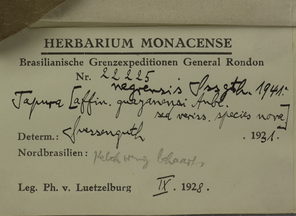 HERBARIUM MONACENSE
Brasilianische Grenzexpeditionen General Rondon
Nr. 22225
negrensis Sssgth. 1941.
Tapura [affin. guayanensi Aubl.
sed veriss. species nova]
Determ.: Suessenguth . 1931.
Nordbrasilien:
Leg. Ph. v. Luetzelburg IX. 1928.